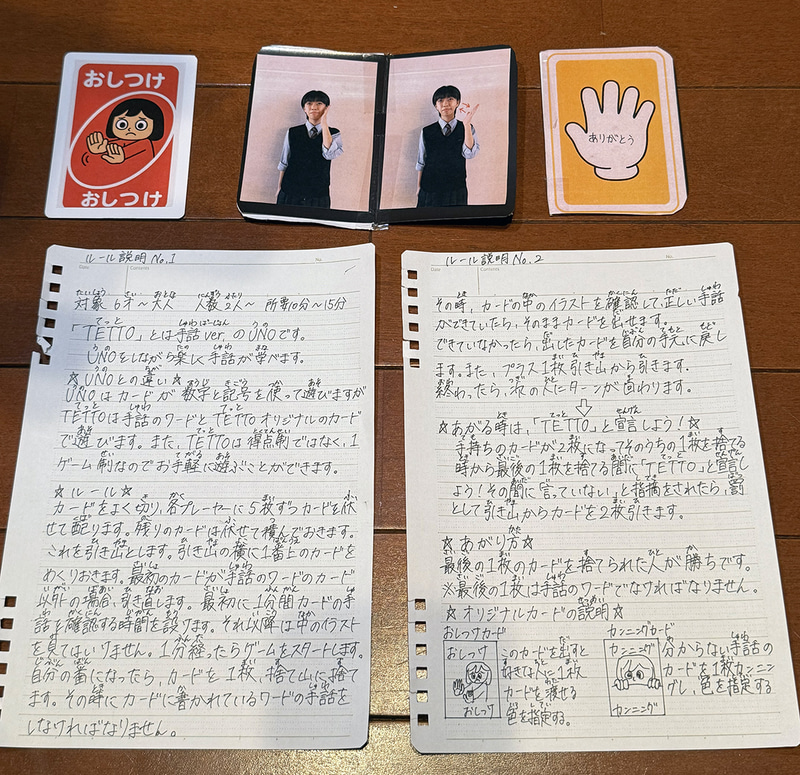 おしつけ
おしつけ
ありがとう
ルール説明 No.1
No.
Date
Contents
対象 6才～大人 人数 2人～ 所要10分～15分
「TETTO」とは手話ver.のUNOです。
UNOをしながら楽しく手話が学べます。
☆UNOとの違い☆
UNOはカードが数字と記号を使って遊びますが
TETTOは手話のワードとTETTOオリジナルのカード
で遊びます。また、TETTOは得点制ではなく、1
ゲーム制なのでお手軽に遊ぶことができます。
☆ルール☆
カードをよく切り、各プレーヤーに5枚ずつカードを伏
せて配ります。残りのカードは伏せて積んでおきます。
これを引き山とします。引き山の横に1番上のカードを
めくりおきます。最初のカードが手話のワードのカード
以外の場合、引き直します。最初に1分間カードの手
話を確認する時間を設ります。それ以降は中のイラスト
を見てはいけません。1分経ったらゲームをスタートします。
自分の番になったら、カードを1枚、捨て山に捨て
ます。その時にカードに書かれているワードの手話を
しなければなりません。
ルール説明 No.2
No.
Date
Contents
その時、カードの中のイラストを確認して、正しい手話
ができていたら、そのままカードを出せます。
できていなかったら、出したカードを自分の手元に戻し
ます。また、プラス1枚引き山から引きます。
終わったら、次の人にターンが回わります。
☆あがる時は、「TETTO」と宣言しよう!☆
手持ちのカードが2枚になってそのうちの1枚を捨てる
時から最後の1枚を捨てる間に「TETTO」と宣言し
よう!その間に言っていない、と指摘をされたら、罰
として引き山からカードを2枚引きます。
☆あがり方☆
最後の1枚のカードを捨てられた人が勝ちです。
※最後の1枚は手話のワードでなければなりません。
☆オリジナルカードの説明☆
おしつけカード
おしつけ
おしつけ
このカードを出すと
好きな人に1枚
カードを渡せる
色を指定する。
カンニングカード
カンニング
カンニング
分からない手話の
カードを1枚カンニン
グし、色を指定する